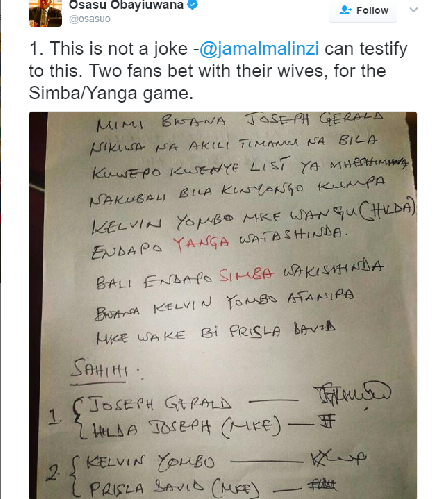 Osasu Obayiuwana
@osasuo
Follow
1. This is not a joke -@jamalmalinzi can testify
to this. Two fans bet with their wives, for the
Simba/Yanga game.
MIMI BWANA JOSEPH GERALD
NIKIWA NA AKILI TIMAMU NA BILA
KUWEPO KUSENYE LIST YA
NAKUBALI BILA KINYONGO KUMPA
KELVIN YOMBO MKE WANGU (HILDA)
ENDAPO YANGA WATASHINDA.
BALI ENDAPO SIMBA WAKISHINDA
BWANA KELVIN YOMBO ATANIPA
MKE WAKE BI PRISLA DAVID
SAHIHI:
1. { JOSEPH GERALD —
HILDA JOSEPH (MKE) —
2. { KELVIN YOMBO —
PRISLA DAVID (MKE) —